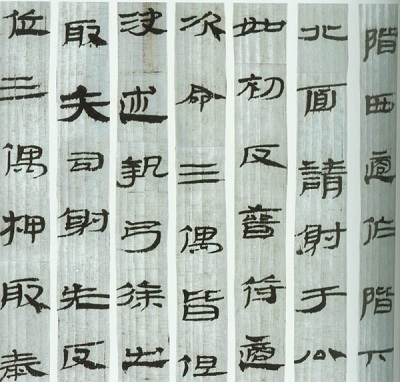 階西適作階下
北面請射于公
如初反晉符適
次命三偶皆但
決述執弓徐出
取矢司射先反
位三偶柙取